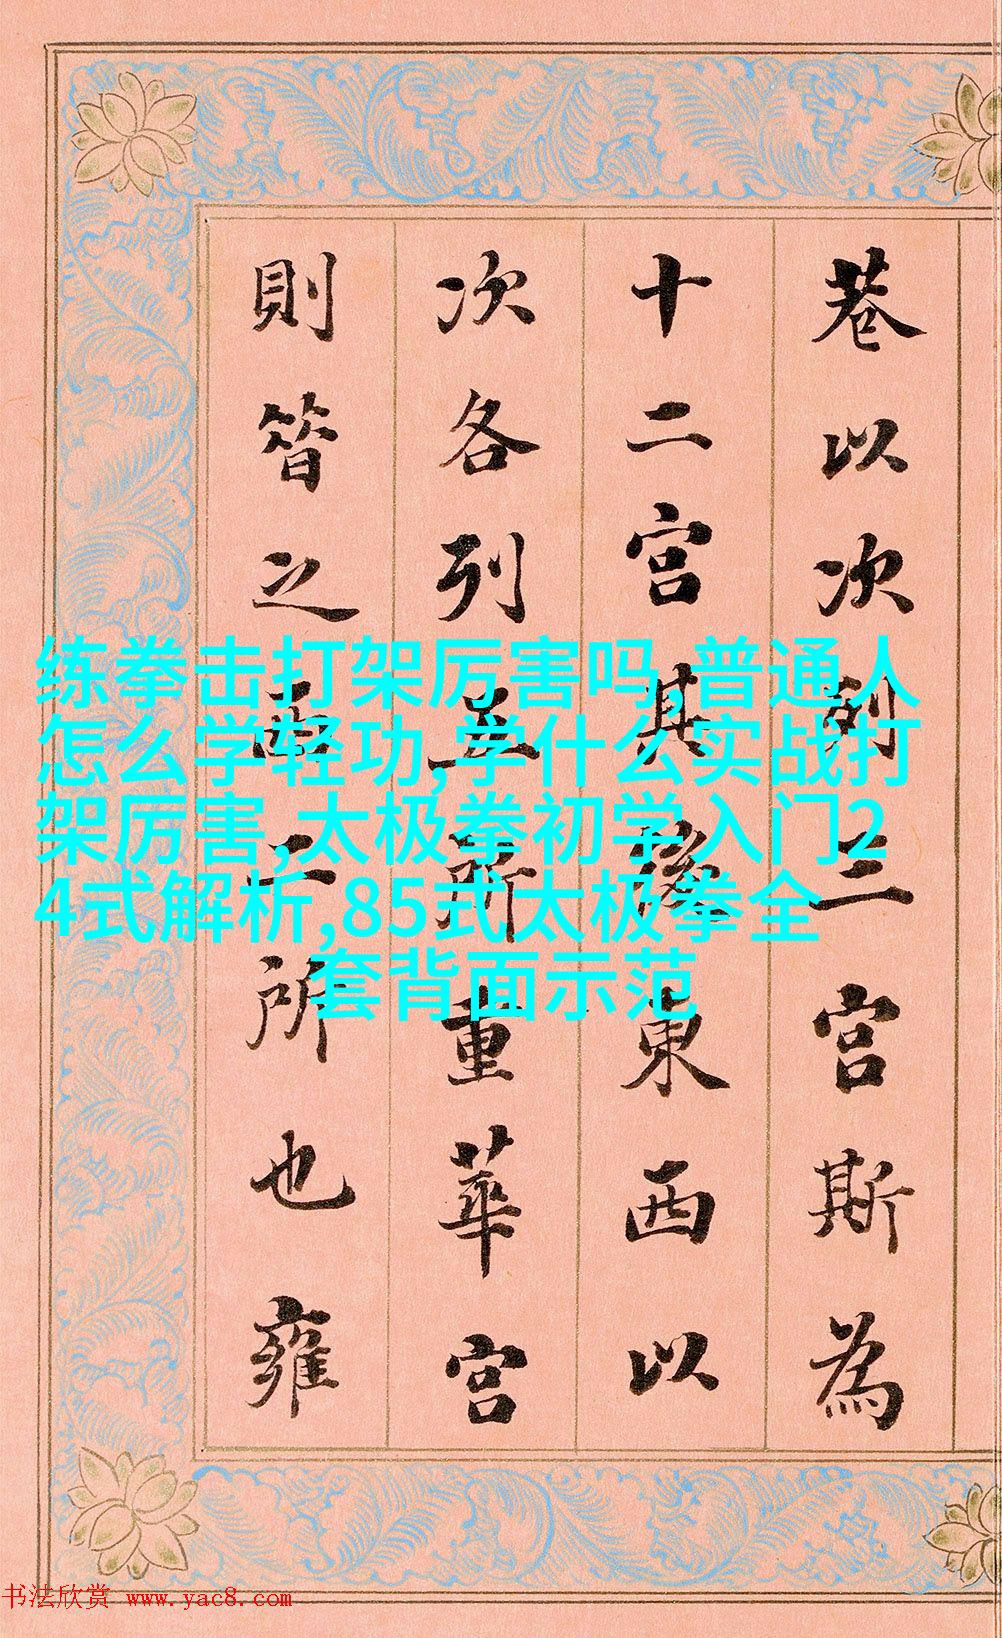 巷以次列三宫斯為
十二宫其後東西以
次各列五所重華宫
則昔之西二所也雍
练拳击打架厉害吗,普通人
怎么学轻功,学什么实战打
架厉害,太极拳初学入门2
4式解析,85式太极拳全
套背面示范
书法欣赏 www.yac8.com